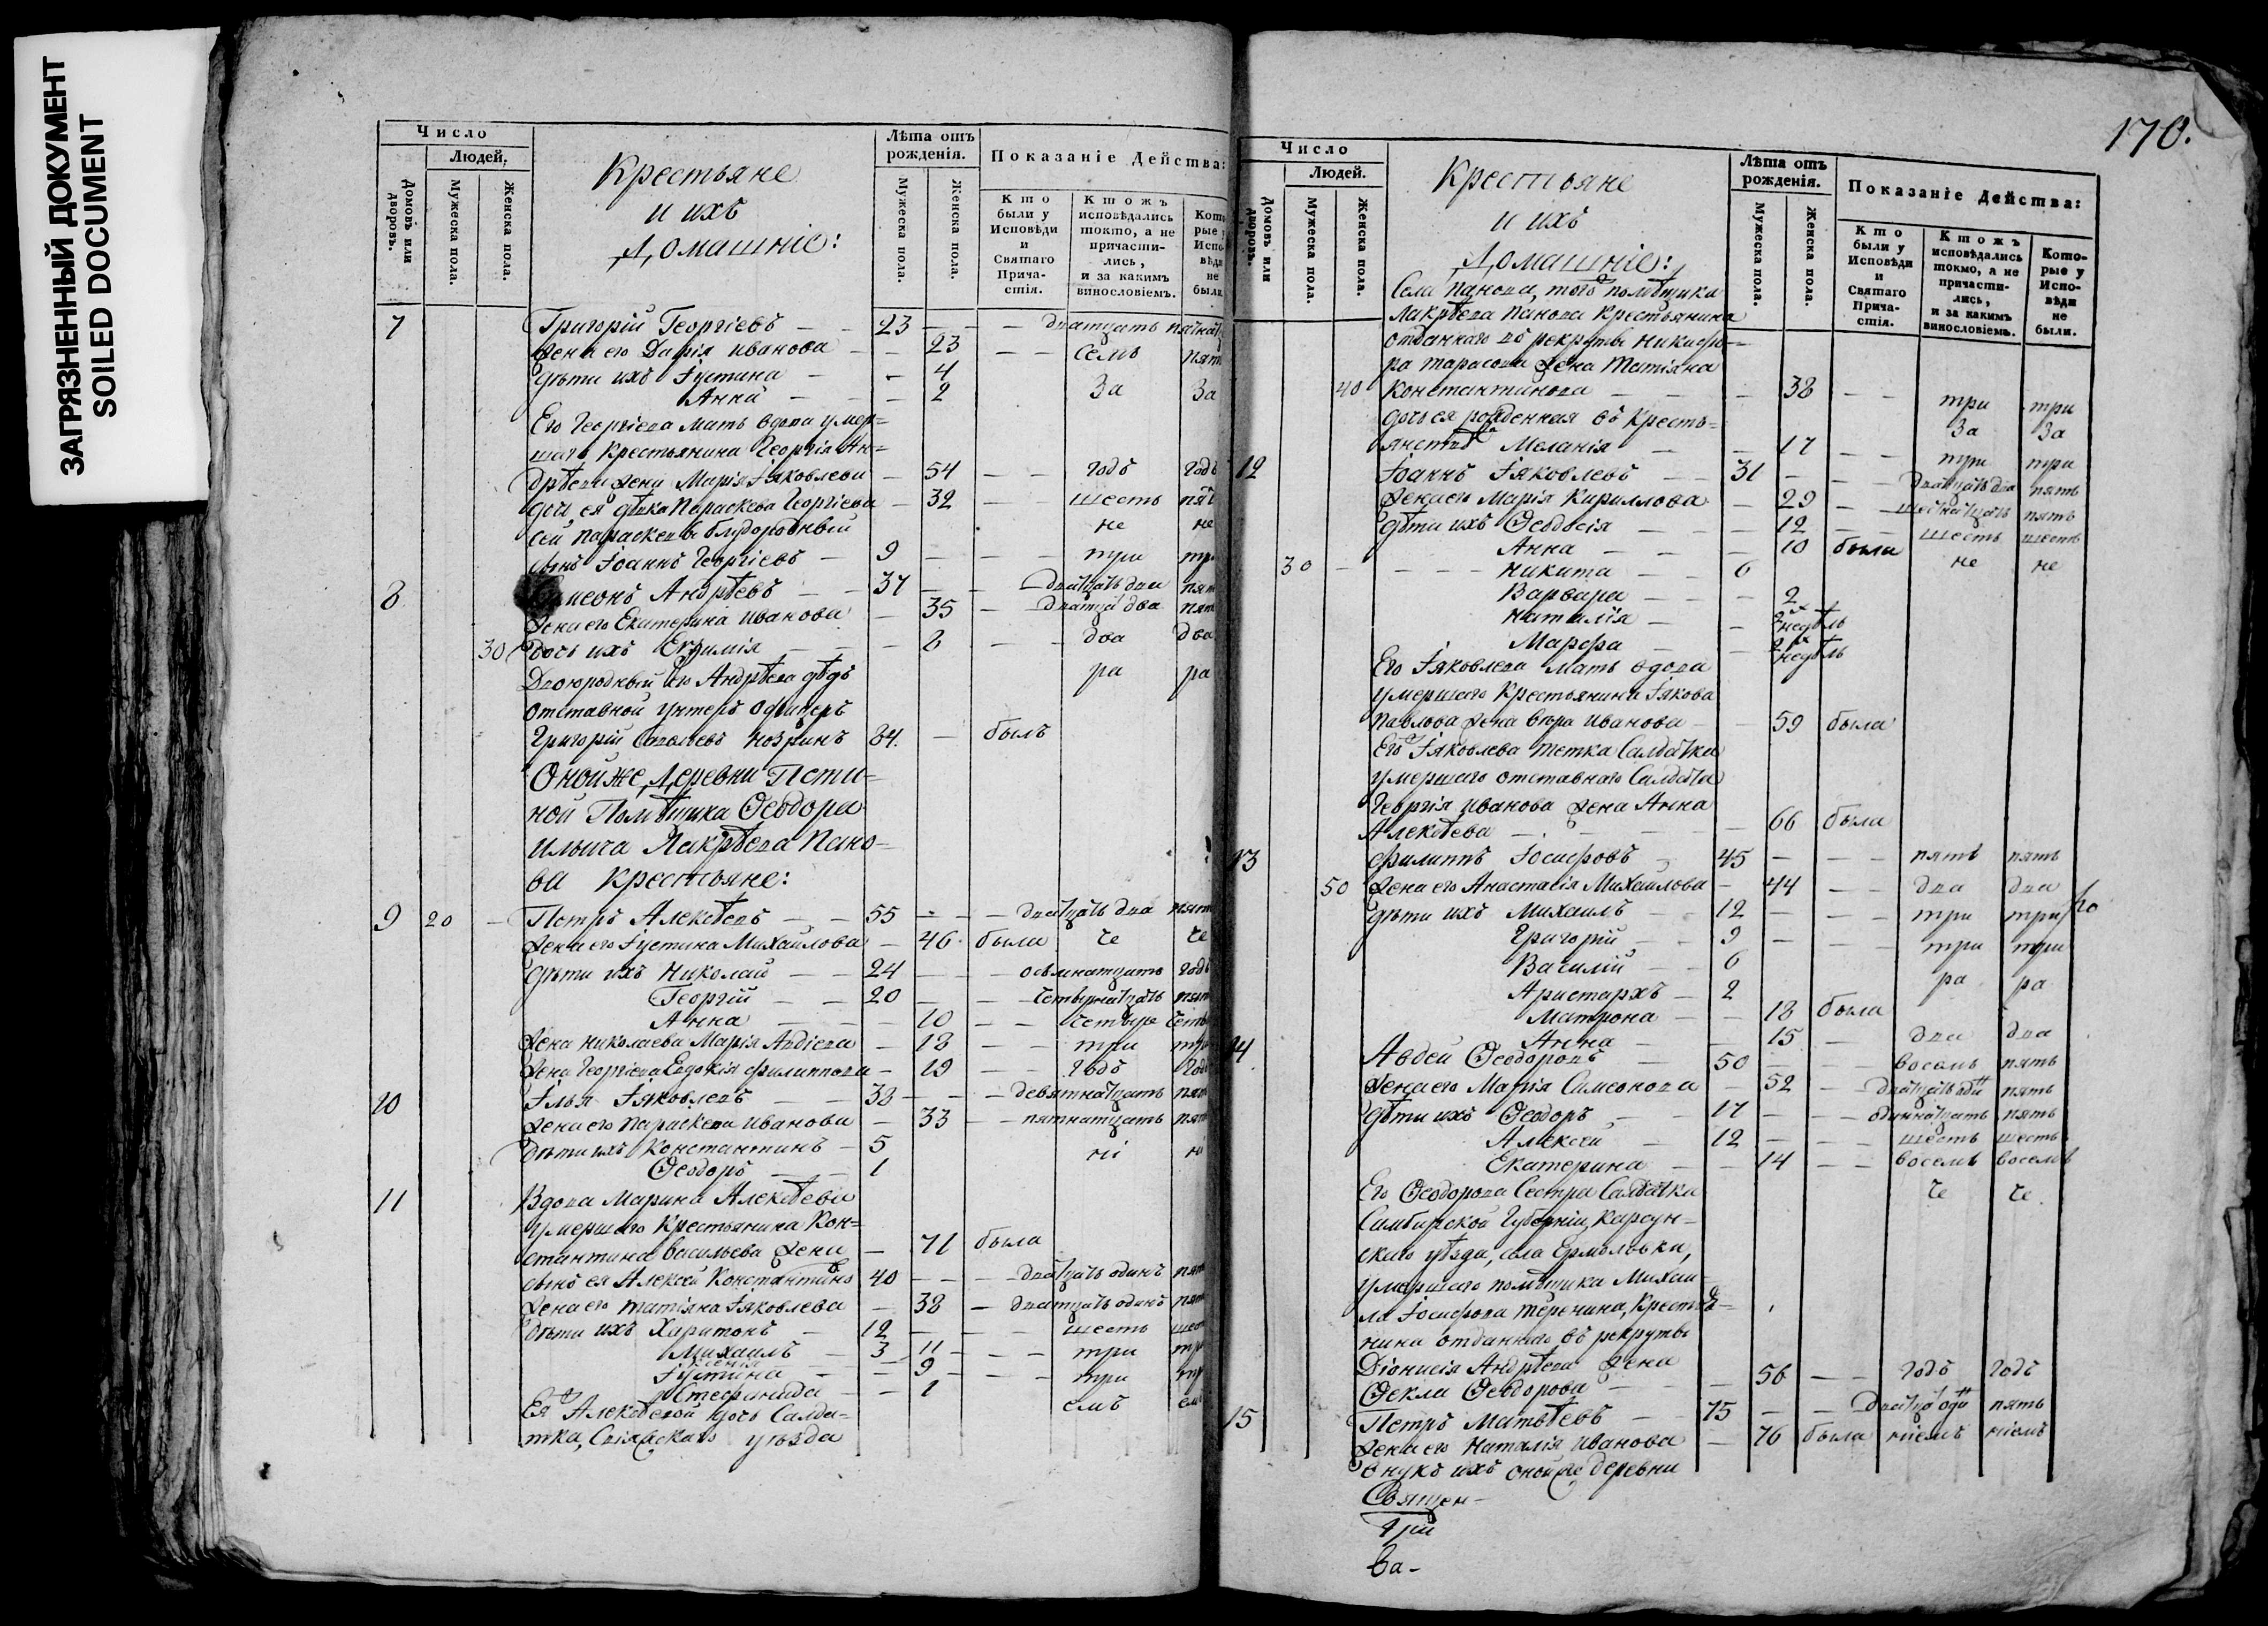 ЗАГРЯЗНЕННЫЙ ДОКУМЕНТ
SOILED DOCUMENT
Число
Людей.
Домовъ или дворовъ.
Мужеска пола.
Женска пола.
Крестьяне
и ихъ
Домашніе:
Лѣта отъ рожденія.
Мужеска пола.
Женска пола.
Показаніе Действа:
Кто были у Исповѣди и Святаго Причастія.
Ктожъ исповѣдались токмо, а не причастились, и за какимъ винословіемъ.
Которые у Исповѣди не были.
7 Григорій Георгіевъ — 23 — — —
Жена его Дарія Иванова — 23 — — семь пять
Дѣти ихъ Іустина — — 4
Анна — — 2 За За
Его Георгіева мать вдова умер=
шаго Крестьянина Георгія Ан=
дрѣева жена Марія Іяковлева — 54 — — годъ годъ
дочь ея дѣвка Параскева Георгіева — 32 — — шесть
сей Параскевы блудородный не не
сынъ Іоаннъ Георгіевъ — 9 — — — три
8 Симеонъ Андрѣевъ — 37 — — дватцать два
Жена его Екатерина Иванова — 35 —
30 Дочь ихъ Евфимія — — 8 — — два два
Двоюродный его Андрѣева дѣдъ ра ра
отставной унтеръ офицеръ
Григорій Савельевъ 84. — былъ
Оной же Деревни
ной Помѣщика Ѳеодора
Ильича Лакрѣева Пано=
ва крестьяне:
9 20 — Петръ Алексѣевъ — — 55 — — — двадцать два
Жена его Іустина Михайлова — 46 была че че
Дѣти ихъ Николай — — 24 — — — осьмнатцать
Георгій — — 20 — — —
Анна — — — 10 — — четыре
Жена Николаева Марія Авдіева — 18 — — три
Жена Георгіева Евдокія Филиппова — 19 — — годъ
10 Илья Іяковлевъ — — 38 — — — девятнатцать
Жена его Параскева Иванова — 33 — — пятнатцать
Дѣти ихъ Константинъ — 5 ні ні
Ѳеодоръ — — 1
11 Вдова Марина Алексѣева
умершаго Крестьянина Кон=
стантина Васильева жена — 71 была
сынъ ея Алексѣй Константиновъ 40 — — — двадцать одинъ
Жена его Татіяна Іяковлева — 38 — двадцать одинъ
Дѣти ихъ Харитонъ — 12 — — — шесть
Михаилъ — 3 11 — — — три
Іустина — — 9 — — — три
Стефанида — — 1 емъ
Ея Алексѣевой дочь Салда=
тка, уѣзда
170.
Число
Людей.
Домовъ или дворовъ.
Мужеска пола.
Женска пола.
Крестьяне
и ихъ
Домашніе:
Лѣта отъ рожденія.
Мужеска пола.
Женска пола.
Показаніе Действа:
Кто были у Исповѣди и Святаго Причастія.
Ктожъ исповѣдались токмо, а не причастились, и за какимъ винословіемъ.
Которые у Исповѣди не были.
Села Панова, того помѣщика
Лакрѣева Панова Крестьянина
отданнаго въ рекруты Никифо=
ра Тарасова жена Татіяна
40 Константинова — — — 38 — — три три
дочь ея рожденная въ Кресть= За За
янствѣ Меланія — — 17 — — три три
12 Іоаннъ Іяковлевъ — — 31 — — — пять
Жена его Марія Кириллова — 29 — — пять
Дѣти ихъ Ѳеодосія — — — 12 — — шесть шесть
Анна — — — 10 была не не
30 — — — — Никита — — 6
Варвара — — — 2
Наталія — — 2хъ недѣль
Марфа — — 2хъ недѣль
Его Іяковлева мать вдова
умершаго Крестьянина Іякова
Павлова жена Вѣра Иванова — — 59 была
Его Іяковлева тетка Салдатка
умершаго отставнаго Салдата
Георгія Иванова жена Анна
Алексѣева — — — — 66 была
13 Филиппъ Іосифовъ — 45 — — — пять пять
50 Жена его Анастасія Михайлова — 44 — — два два
Дѣти ихъ Михаилъ — 12 — — — три три
Григорій — — 9 — — — три три
Василій — — 6
Аристархъ — 2 ра ра
Матрона — — 18 была
Анна — — 15 — два два
14 Авдей Ѳеодоровъ — 50 — — — восемь пять
Жена его Марія Симеонова — 52 — пять
Дѣти ихъ Ѳеодоръ — — 17 — — — одиннатцать пять
Алексѣй — 12 — — — шесть шесть
Екатерина — — 14 — — восемь восемь
Его Ѳеодорова Сестра Салдатка че че
Симбирской Губерніи, Карсун=
скаго уѣзда, села Ермоловки,
умершаго помѣщика Михаи=
ла Іосифова Теренина, Крестья=
нина отданнаго въ рекруты
Діонисія Андрѣева жена
Ѳекла Ѳеодорова — — — 56 — — годъ годъ
15 Петръ Матвѣевъ — 75 — — пять
Жена его Наталія Иванова — 76 была
Внукъ ихъ оной же деревни
Священ=